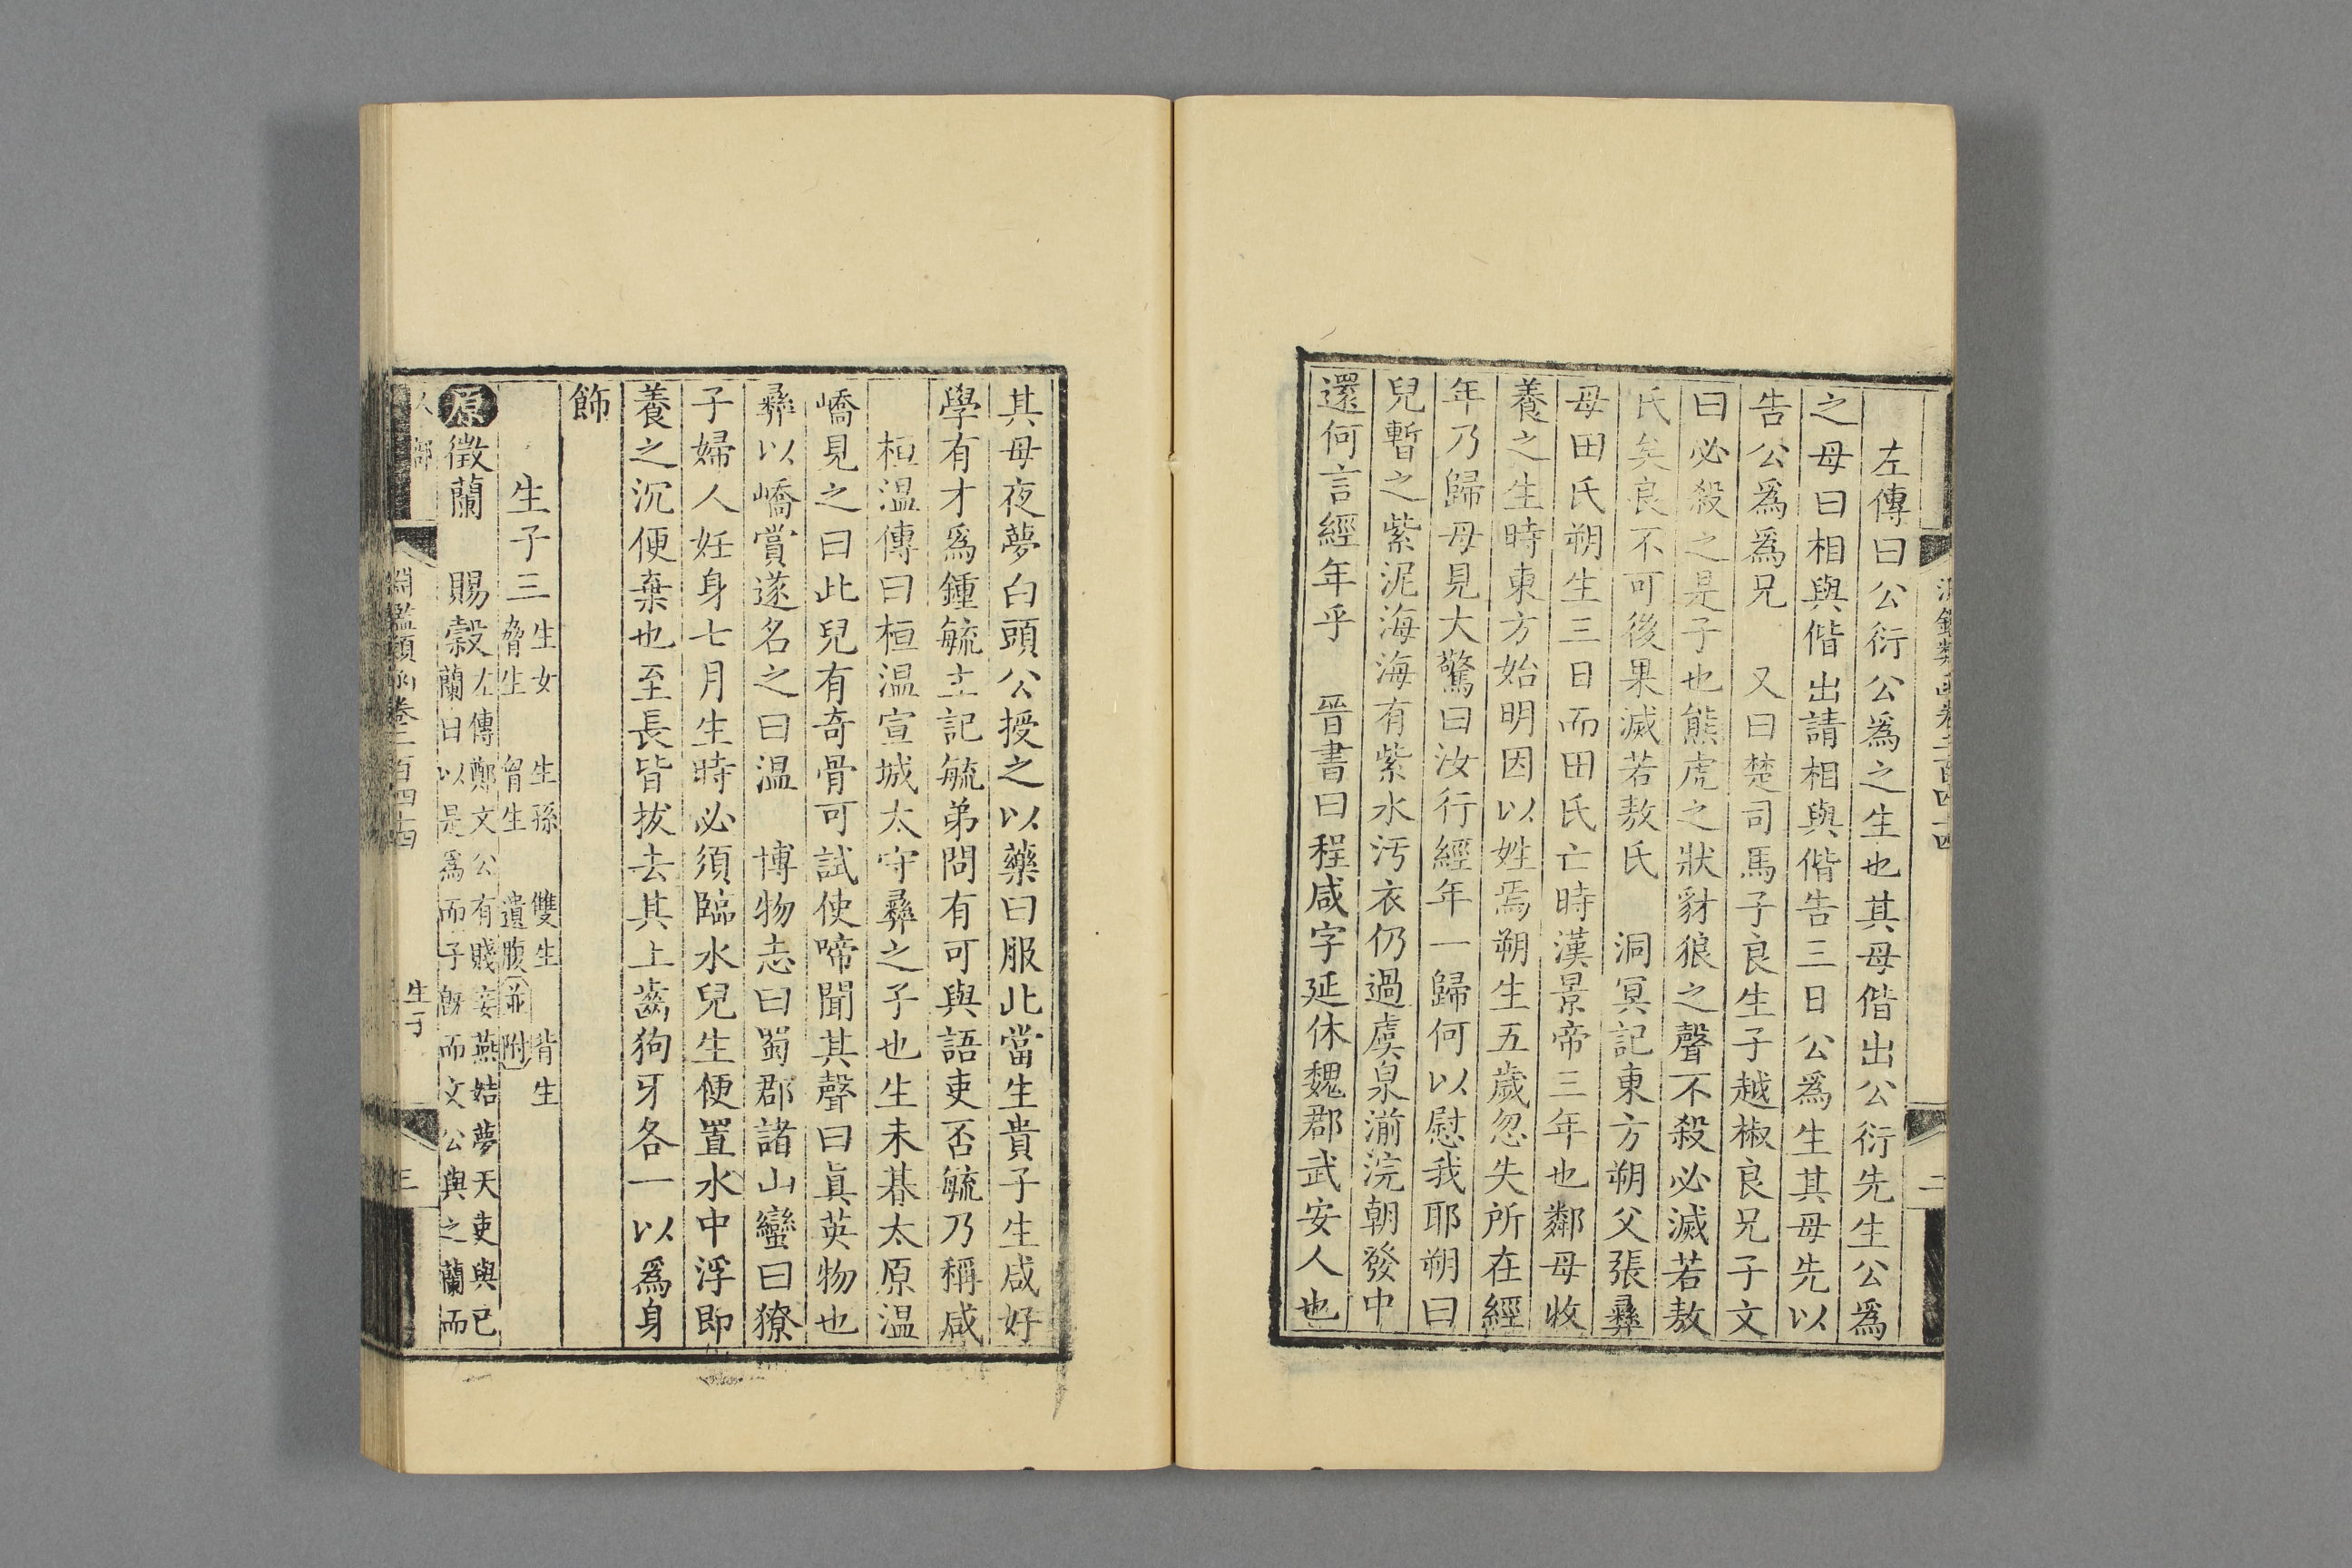 淵鑑類函卷二百四十四
二
左傳曰公衍公爲之生也其母偕出公衍先生公爲
之母曰相與偕出請相與偕告三日公爲生其母先以
告公爲爲兄 又曰楚司馬子良生子越椒良兄子文
曰必殺之是子也熊虎之狀豺狼之聲不殺必滅若敖
氏矣良不可後果滅若敖氏 洞冥記東方朔父張彝
母田氏朔生三日而田氏亡時漢景帝三年也鄰母收
養之生時東方始明因以姓焉朔生五歲忽失所在經
年乃歸母見大驚曰汝行經年一歸何以慰我耶朔曰
兒暫之紫泥海海有紫水污衣仍過虞泉湔浣朝發中
還何言經年乎 晉書曰程咸字延休魏郡武安人也
其母夜夢白頭公授之以藥曰服此當生貴子生咸好
學有才爲鍾毓主記毓弟問有可與語吏否毓乃稱咸
桓温傳曰桓温宣城太守彝之子也生未朞太原温
嶠見之曰此兒有奇骨可試使啼聞其聲曰眞英物也
彝以嶠賞遂名之曰温 博物志曰蜀郡諸山蠻曰獠
子婦人妊身七月生時必須臨水兒生便置水中浮即
養之沉便棄也至長皆拔去其上齒狗牙各一以爲身
飾
生子三 生女 生孫 雙生 背生
脅生 胷生 遺腹 並附
原徵蘭 賜穀 左傳鄭文公有賤妾燕姞夢天吏與已
蘭曰以是爲而子旣而文公與之蘭而
人部
淵鑑類函卷二百四十四
生子
三